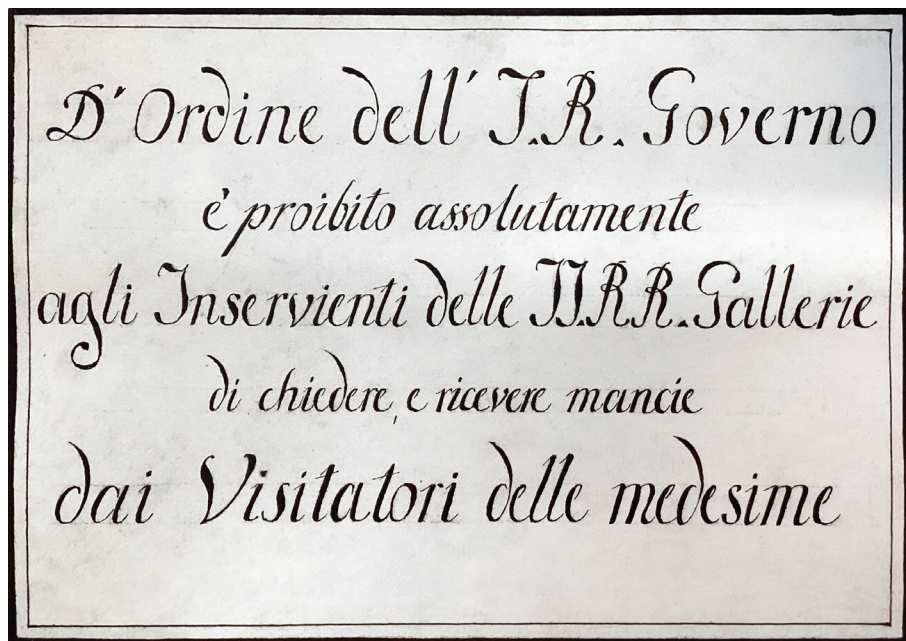 D'Ordine dell'I.R. Governo
è proibito assolutamente
agli Inservienti delle II.RR. Gallerie
di chiedere, e ricevere mancie
dai Visitatori delle medesime